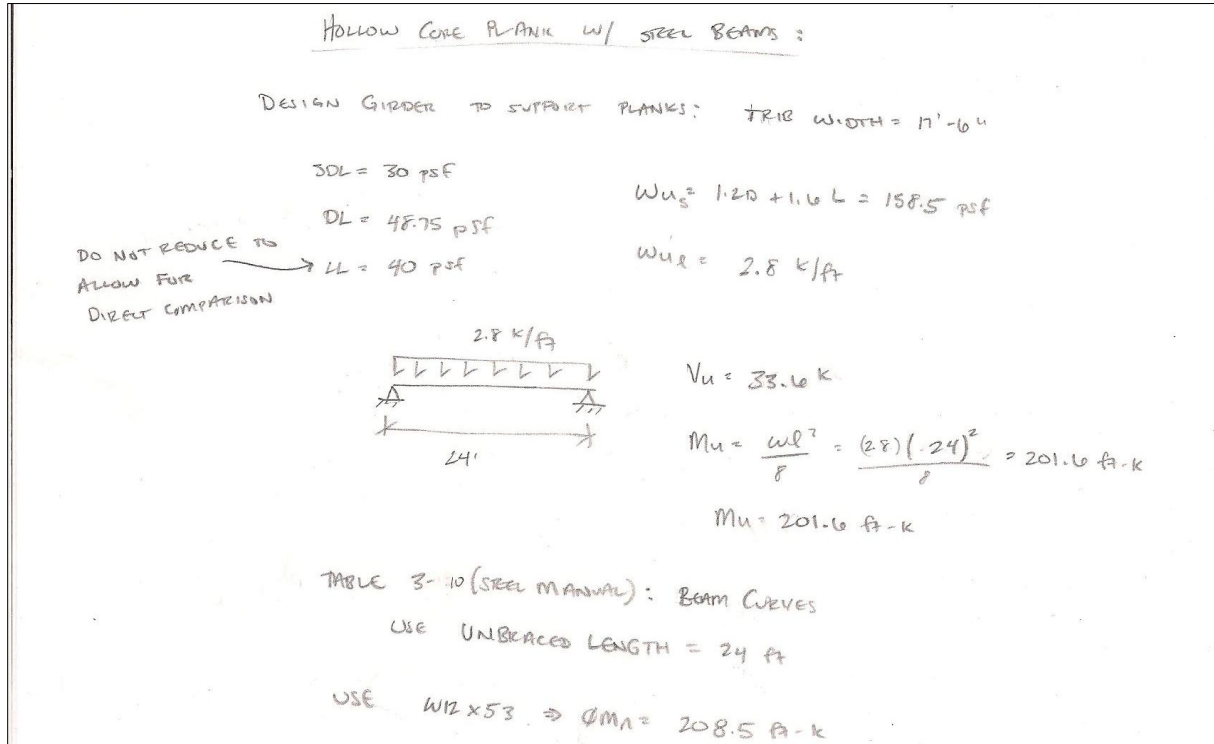 HOLLOW CORE PLANK W/ STEEL BEAMS :
DESIGN GIRDER TO SUPPORT PLANKS: TRIB WIDTH = 17'-6"
SDL = 30 psf
DL = 48.75 psf
DO NOT REDUCE TO
ALLOW FOR
DIRECT COMPARISON
LL = 40 psf
Wu_s = 1.2D + 1.6 L = 158.5 psf
Wu_l = 2.8 k/ft
2.8 k/ft
24'
Vu = 33.6 k
Mu = wl²/8 = (2.8)(24)²/8 = 201.6 ft-k
Mu = 201.6 ft-k
TABLE 3-10 (STEEL MANUAL) : BEAM CURVES
USE UNBRACED LENGTH = 24 ft
USE W12x53 ⇒ ØMn = 208.5 ft-k